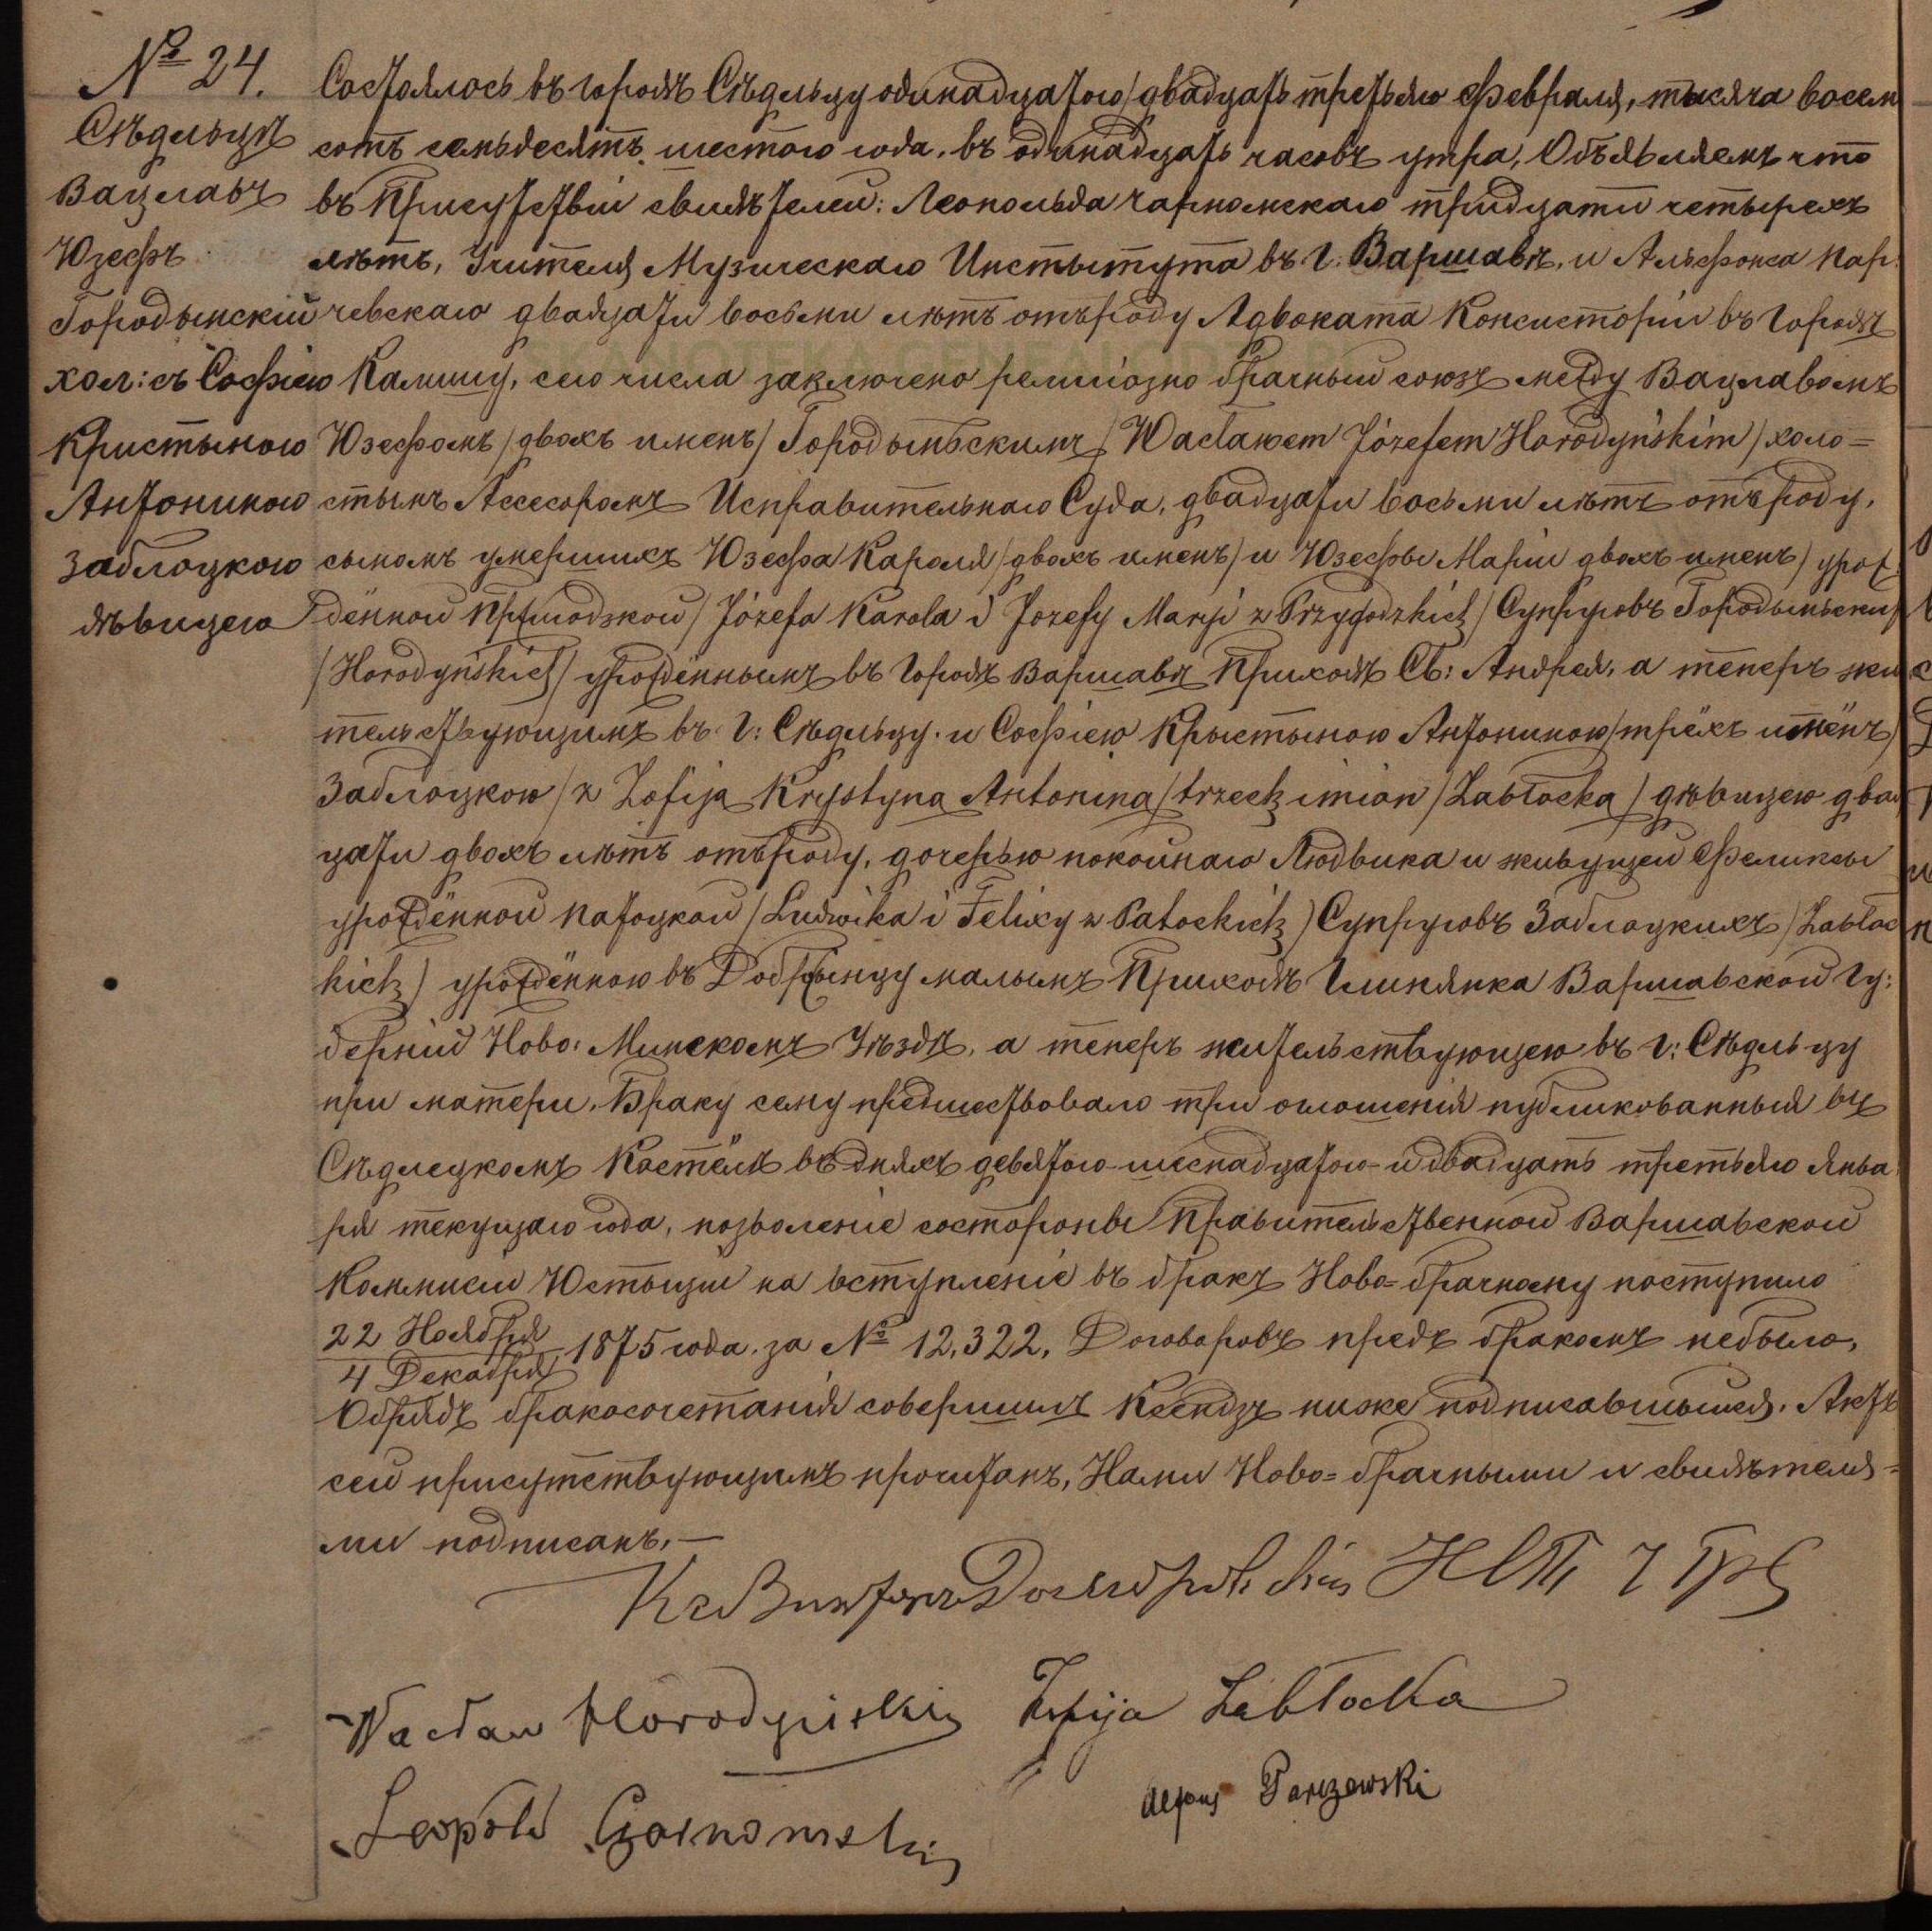 № 24.
Сѣдльцѣ
Вацлавъ
Юзефъ
Городынскій
хол: съ Софіею
Кристыною
Антониною
Заблоцкою
дѣвицею
Состоялось въ городѣ Сѣдльцу одинадцатого/двадцать третьяго Февраля, тысяча восем
сотъ семьдесятъ шестого года, въ одинадцать часовъ утра, Объявляемъ что
въ присутствіи свидѣтелей: Леопольда Чарномскаго тридцати четырехъ
лѣтъ, Учителя Музическаго Инстытута въ Г: Варшавѣ, и Альфонса Пар:
чевскаго двадцати восьми лѣтъ отъ роду Адвоката Консисторіи въ Городѣ
Калишу, сего числа заключено религіозно брачный союзъ между Вацлавомъ
Юзефомъ /двохъ именъ/ Городыньскимъ /Wacławem Józefem Horodyńskim/ холо=
стымъ Ассесоромъ Исправительнаго Суда, двадцати восьми лѣтъ отъ роду,
сыномъ умершихъ Юзефа Кароля /двохъ именъ/ и Юзефы Маріи двохъ именъ/ урож
дённой Пржигодзкой /Józefa Karola i Jozefy Maryi z Przygodzkich/ Супруговъ Городыньских
/Horodyńskich/ урождённымъ въ Городѣ Варшавѣ Приходѣ Св: Андрея, а теперъ жи
тельствующимъ въ Г: Сѣдльцу. и Софіею Крыстыною Антониною /трёхъ имёнъ/
Заблоцкою /z Zofija Krystyna Antonina /trzech imion/ Zabłocka/ дѣвицею двад
цати двохъ лѣтъ отъ роду, дочерью покойнаго Людвика и живущей Феликсы
урождённой Патоцкой /Ludwika i Felixy z Patockich/ Супруговъ Заблоцкихъ /Zabłoc
kich/ урождённою въ Добржынцу малымъ Приходѣ Глинянка Варшавской Гу:
берніи Ново: Минскомъ Уѣздѣ, а теперъ жительствующею въ Г: Сѣдльцу
при матери. Браку сему предшествовало три оглошенія публикованныя въ
Сѣдлецкомъ Костёлѣ въ дняхъ девятого-шеснадцатого-и двадцать третьяго Янва
ря текущаго года, позволеніе состороны Правительственной Варшавской
Коммисіи Юстыціи на вступленіе въ бракъ Ново=брачному поступило
22 Ноября
4 Декабря 1875 года. за № 12,322, Договоровъ предъ бракомъ небыло,
Обрядъ бракосочетанія совершилъ Ксендзъ ниже подписавшыйся. Актъ
сей присутствующимъ прочитанъ, Нами Ново=брачными и свидѣтеля=
ми подписанъ.—
Wacław Horodyński Zofija Zabłocka
Leopold Czarnomski Alfons Parczewski